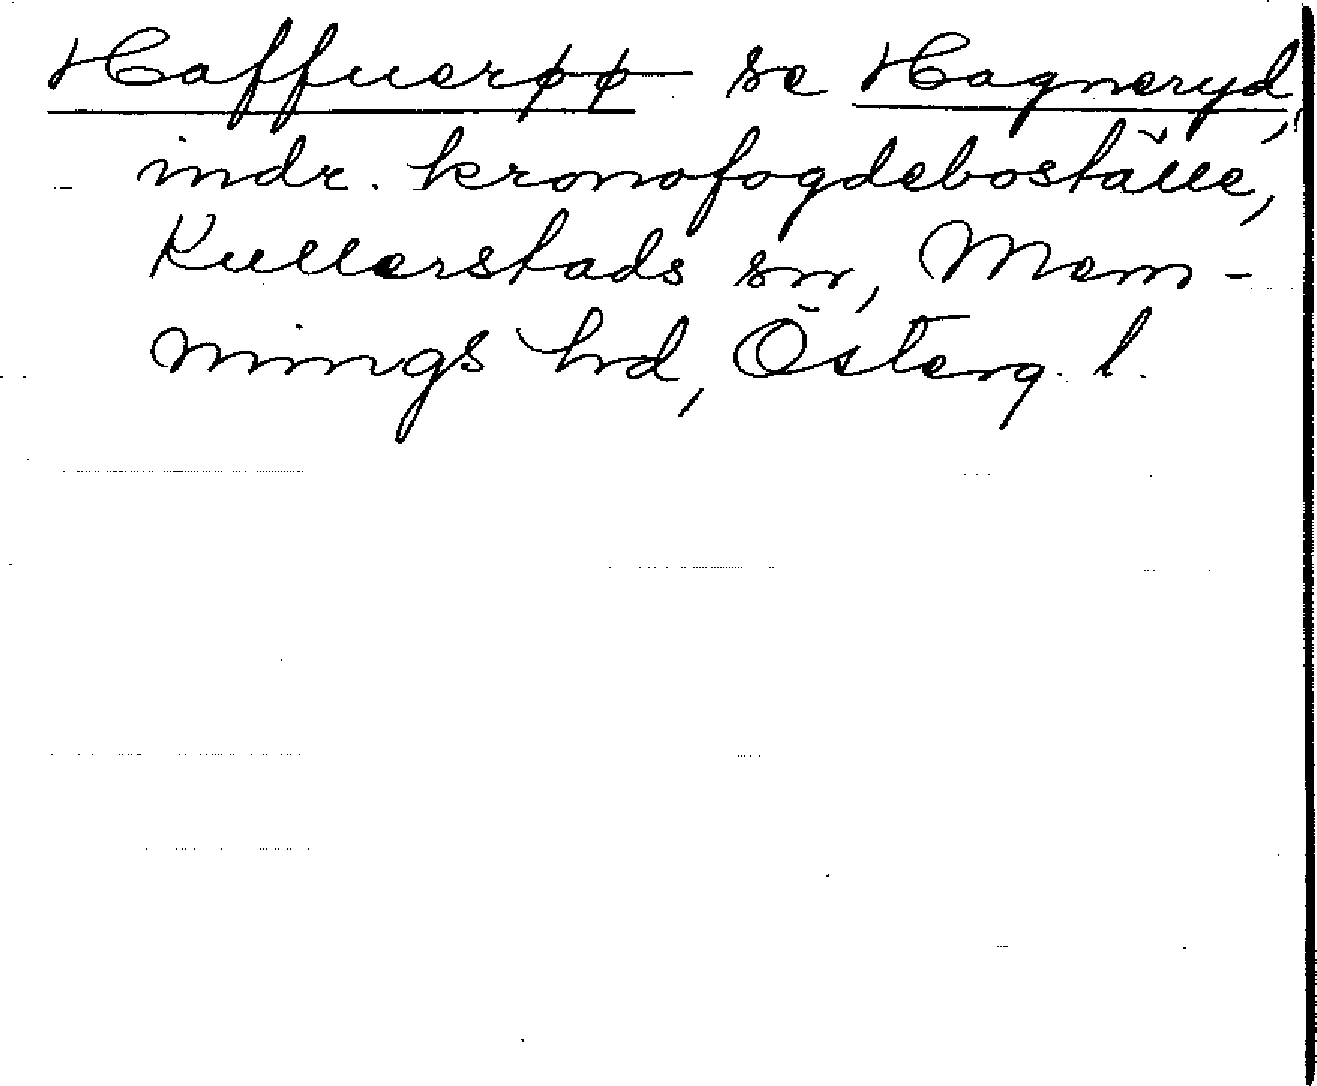 Haffuerpp se Hagneryd,
indr. kronofogdeboställe,
Kullerstads sn, Mem-
mings hd, Österg. l.